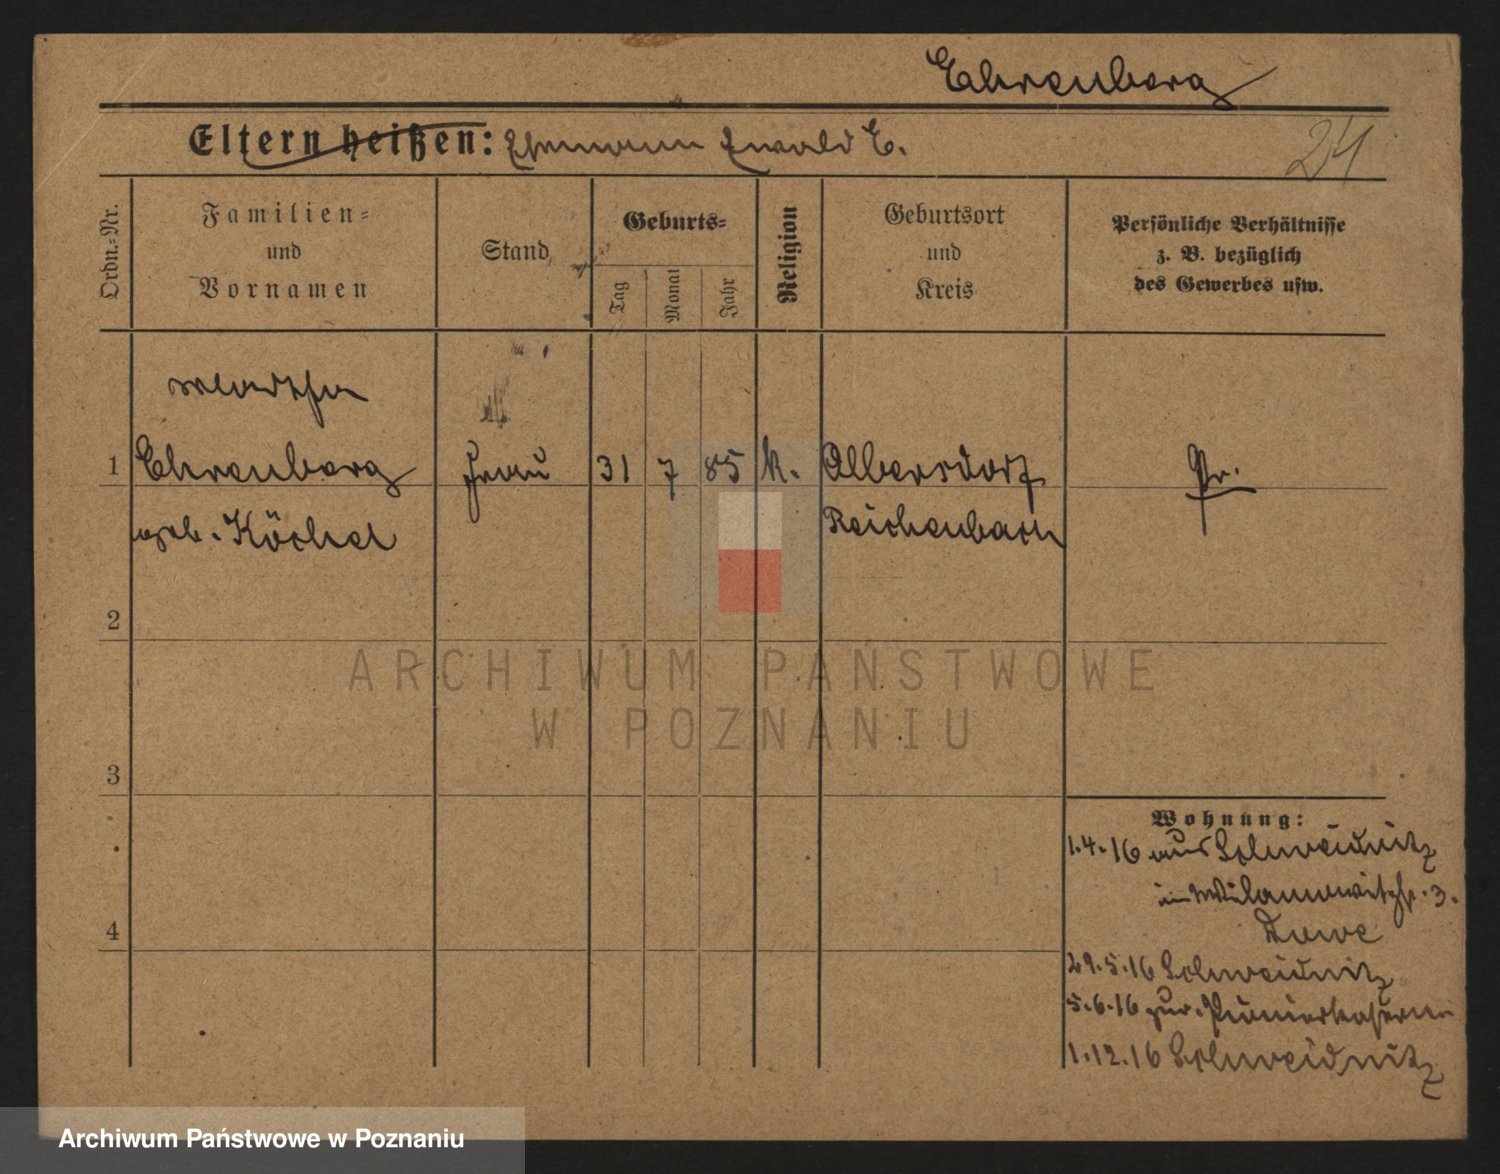 Ehrenberg
Eltern heißen: Ehemann Ewald E.
24
Ordn.=Nr.
Familien=
und
Vornamen
Stand
Geburts=
Tag
Monat
Jahr
Religion
Geburtsort
und
Kreis
Persönliche Verhältnisse
z. B. bezüglich
des Gewerbes usw.
Martha
1 Ehrenberg Frau 31 7 85 k. Albersdorf Pr.
geb. Köchel Reichenbach
2
ARCHIWUM PAŃSTWOWE
W POZNANIU
3
Wohnung:
1.4.16 aus Schweidnitz
in Wilamowitzstr. 3.
4
29.5.16 Schweidnitz
5.6.16 zur. Pionierkaserne
1.12.16 Schweidnitz
Archiwum Państwowe w Poznaniu